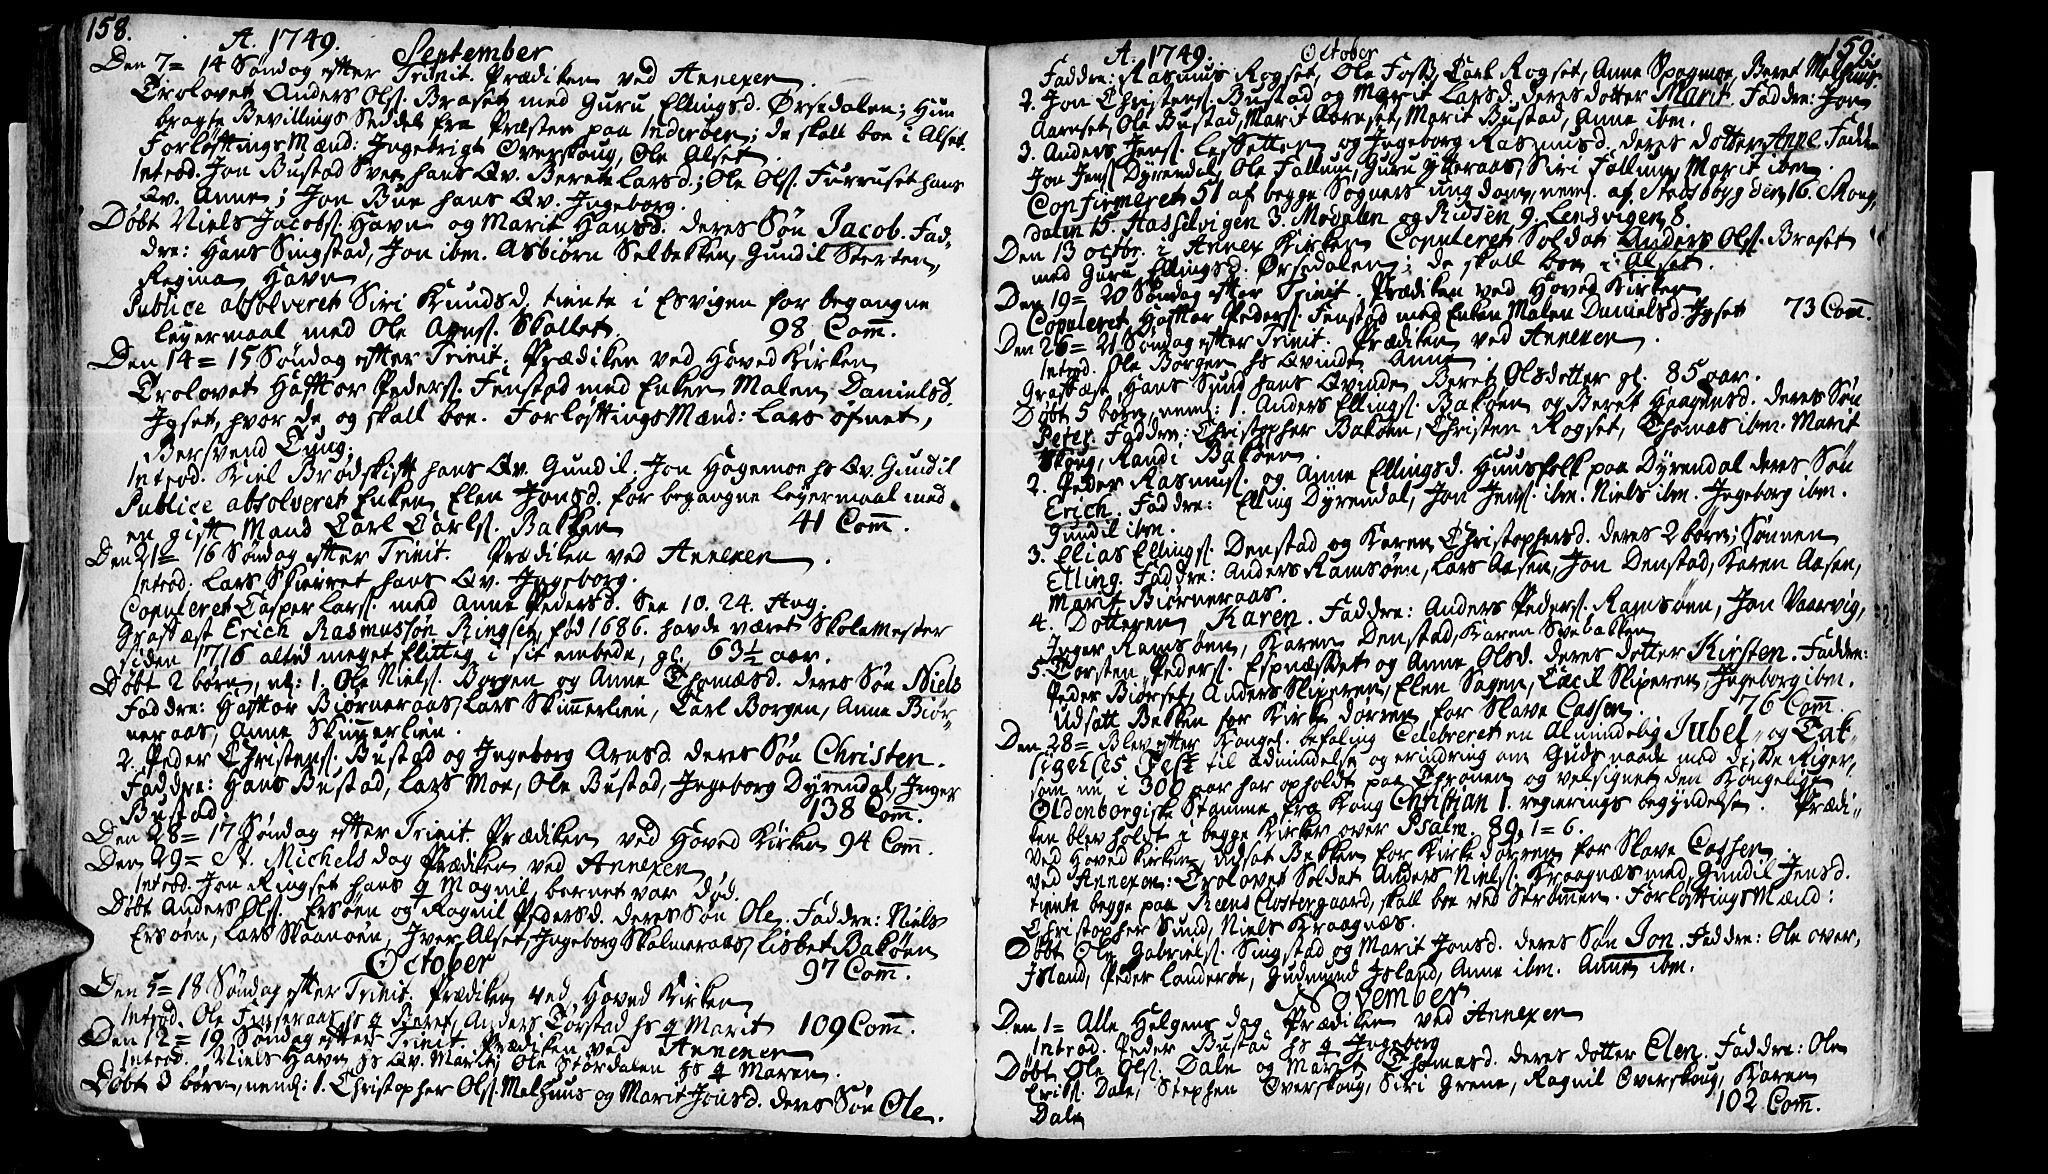 158.
A. 1749. September
Den 7= 14 Søndag efter Trinit. Prædiken ved Annexen.
Trolovet Anders Ols. Braset med Guru Ellingsd. Ørsedalen; Hun
bragte Bevillings Seddel fra Præsten paa Inderøen; de skall boe i Alset.
Forløftings Mænd: Ingebrigt Overskoug, Ole Alset.
Introd. Jon Bustad Sveen hans Qv. Beret Larsd.; Ole Ols. Furruset hans
Qv. Anne; Jon Bue hans Qv. Ingeborg.
Døbt Niels Jacobs. Havn og Marit Hansd. deres Søn Jacob. Fad-
dre: Hans Singstad, Jon ibm. Asbiørn Selbekken, Gundil Sterten,
Regina Havn
Publice absolveret Siri Knudsd. tiente i Esvigen for begangne
Leyermaal med Ole Arns. Skallet. 98 Com.
Den 14= 15 Søndag efter Trinit. Prædiken ved Hoved Kirken
Trolovet Hafftor Peders. Fenstad med Enken Malen Danielsd.
Igset, hvor de og skall boe. Forløftings Mænd: Lars ofnet,
Bersvend Tung.
Introd. Kiel Brødskift hans Qv. Gundil. Jon Hagemoe hs Qv. Gundil
Publice absolveret Enken Elen Jonsd. for begangne Leyermaal med
en gift Mand Carl Carls. Bakken 41 Com.
Den 21= 16 Søndag efter Trinit. Prædiken ved Annexen.
Introd. Lars Skierret hans Qv. Ingeborg.
Copuleret Casper Lars. med Anne Pedersd. See 10. 24. Aug.
Græsfæst Erich Rasmussøn Ringset, fød 1686. havde været Skolemester
siden 1716 altid meget flittig i sit embede, gl. 63½ aar.
Døbt 2 børn, nl: 1. Ole Niels. Borgen og Anne Thomæsd. deres Søn Niels
Faddre: Hafftor Biørneraas, Lars Skimmerlien, Carl Borgen, Anne Biør-
neraas, Anne Skimmerlien.
2. Peder Christens. Bustad og Ingeborg Arnsd. deres Søn Christen.
Faddre: Hans Bustad, Lars Moe, Ole Bustad, Ingeborg Dyrendal, Inger
Bustad. 138 Com.
Den 28= 17 Søndag efter Trinit. Prædiken ved Hoved Kirken 94 Com.
Den 29= St. Michels dag Prædiken ved Annexen
Introd. Jon Ringset hans q Magnil, barnet var død.
Døbt Anders Ols. Ersøen og Ragnil Pedersd. deres Søn Ole. Faddre: Niels
Ersøen, Lars Skaanøen, Iver Alset, Ingeborg Skalmeraas, Lisbet Bakøen
October 97 Com.
Den 5= 18. Søndag efter Trinit. Prædiken ved Hoved Kirken
Introd. Ole Finseraas hs q Beret, Anders Torstad hs q Marit 109 Com.
Den 12= 19. Søndag efter Trinit. Prædiken ved Annexen
Introd. Niels Havn hs Qv. Marit, Ole Stordalen hs q Maren.
Døbt 3 børn, neml: 1. Christopher Ols. Melhuus og Marit Jonsd. deres Søn Ole.
A. 1749. October 159.
Faddre: Rasmus Rogset, Ole Foss, Carl Rogset, Anne Spagmoe, Beret Melhuus.
2. Jon Christens. Bustad og Marit Larsd. deres dotter Marit. Faddre: Jon
Aarnset, Ole Bustad, Marit Aarnset, Marit Bustad, Anne ibm.
3. Anders Jens. Lersetten og Ingeborg Rasmusd. deres dotter Anne. Faddre
Jon Jens. Dyrendal, Ole Fallun, Guru Ytteraas, Siri Fallun, Marit ibm.
Confirmeret 51 af begge Sogners ungdom, neml. af Stadsbygden 16. Skoug-
dalen 15. Hasselvigen 3. Modalen og Ridsen 9. Lensvigen 8.
Den 13 octbr. i Annex Kirken Copuleret Soldat Anders Ols. Braset
med Guru Ellingsd. Ørsedalen; de skall boe i Alset.
Den 19= 20 Søndag efter Trinit. Prædiken ved Hoved Kirken
Copuleret Hafftor Peders. Fenstad med Enken Malen Danielsd. Igset 73 Com.
Den 26= 21 Søndag efter Trinit. Prædiken ved Annexen.
Introd. Ole Borgen hs Qvinde Anne
Græsfæst Hans Sund hans Qvinde Beret Olsdotter gl. 85 aar.
Døbt 5 børn, neml: 1. Anders Ellings. Bakøen og Beret Haagensd. deres Søn
Peter. Faddre: Christopher Bakøen, Christen Rogset, Thomas ibm. Marit
Skoug, Randi Bakøen.
2. Peder Rasmus. og Anne Ellingsd. Huusfolk paa Dyrendal deres Søn
Erich. Faddre: Elling Dyrendal, Jon Jens. ibm. Niels ibm. Ingeborg ibm.
Gundil ibm.
3. Elias Ellings. Denstad og Karen Christophersd. deres 2 børn; Sønnen
Elling. Faddre: Anders Ramsøen, Lars Aasen, Jon Denstad, Karen Aasen,
Marit Biørneraas.
4. Dotteren Karen. Faddre: Anders Peders. Ramsøen, Jon Vaarvig,
Inger Ramsøen, Karen Denstad, Karen Svebakken
5. Torsten Peders. Espnæsset og Anne Olsd. deres dotter Kirsten. Faddre:
Peder Biørset, Anders Skiperen, Elen Sagen, Cecil Skiperen, Ingeborg ibm.
Udsatt Bekken for Kirke dørren for Slave Cassen. 76 Com.
Den 28= Blev efter Kongel. befaling Celebreret en Almindelig Jubel- og Tak-
sigelses Fest til Admindelse og erindring om Guds naade mod disse Riger,
som nu i 300 aar har opholdt paa Thronen og velsignet den Kongelige
Oldenborgiske Stamme fra Kong Christian I. regierings begyndelse. Prædi-
ken blev holdt i begge Kirker over Psalm. 89, 1=6.
Ved Hoved Kirken udsat Bekken for Kirke dørren for Slave Cassen.
Ved Annexen: Trolovet Soldat Anders Niels. Kraagnæs med Gundil Jensd.
tiente begge paa Reens Clostergaard, skall boe ved Strømmen. Forløftings Mænd:
Christopher Sund, Niels Kraagnæs.
Døbt Ole Gabriels. Singstad og Marit Jonsd. deres Søn Jon. Faddre: Ole over,
Island, Peder Landerøe, Gudmund Island, Anne ibm. Anne ibm.
November
Den 1= Alle Helgens dag Prædiken ved Annexen
Introd. Peder Bustad hs q Ingeborg
Døbt Ole Ols. Dale og Marit Thomasd. deres dotter Elen. Faddre: Ole
Eriks. Dale, Stephen Overskoug, Siri Grene, Ragnil Overskoug, Karen
Dale 102 Com.